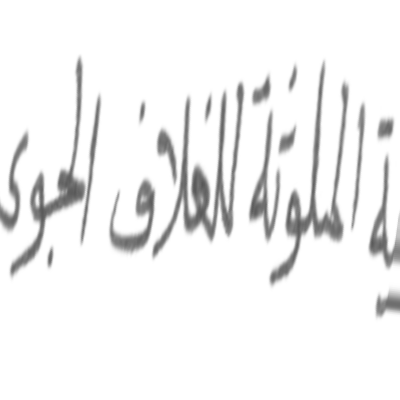 الملوثة للغلاف الجوى